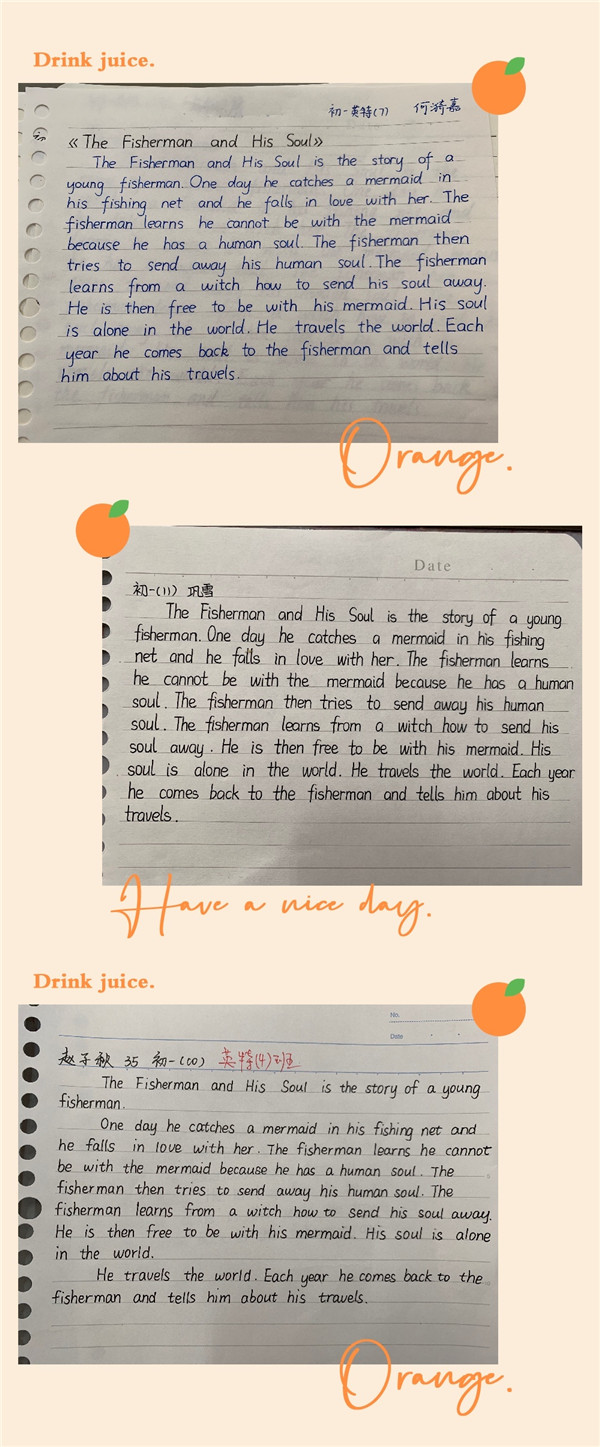 Drink juice.
初一英特(7) 何漪嘉
《The Fisherman and His Soul》
The Fisherman and His Soul is the story of a
young fisherman. One day he catches a mermaid in
his fishing net and he falls in love with her. The
fisherman learns he cannot be with the mermaid
because he has a human soul. The fisherman then
tries to send away his human soul. The fisherman
learns from a witch how to send his soul away.
He is then free to be with his mermaid. His soul
is alone in the world. He travels the world. Each
year he comes back to the fisherman and tells
him about his travels.
Orange.
Date
初一(11) 巩雪
The Fisherman and His Soul is the story of a young
fisherman. One day he catches a mermaid in his fishing
net and he falls in love with her. The fisherman learns
he cannot be with the mermaid because he has a human
soul. The fisherman then tries to send away his human
soul. The fisherman learns from a witch how to send his
soul away. He is then free to be with his mermaid. His
soul is alone in the world. He travels the world. Each year
he comes back to the fisherman and tells him about his
travels.
Have a nice day.
Drink juice.
No.
Date
赵子秋 35 初一(10) 英特(4)班
The Fisherman and His Soul is the story of a young
fisherman.
One day he catches a mermaid in his fishing net and
he falls in love with her. The fisherman learns he cannot
be with the mermaid because he has a human soul. The
fisherman then tries to send away his human soul. The
fisherman learns from a witch how to send his soul away.
He is then free to be with his mermaid. His soul is alone
in the world.
He travels the world. Each year he comes back to the
fisherman and tells him about his travels.
Orange.